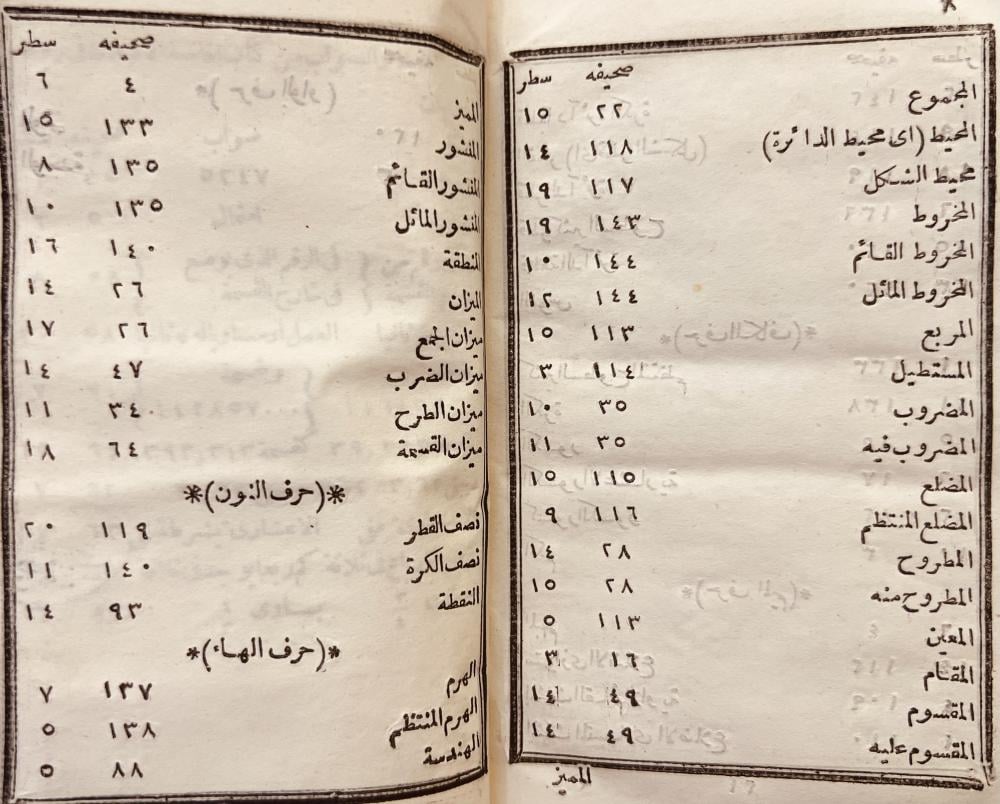 صحيفه سطر
المجموع ٢٢ ١٥
المحيط (اى محيط الدائرة) ١١٨ ١٤
محيط الشكل ١١٧ ١٩
المخروط ١٤٣ ١٩
المخروط القائم ١٤٤ ١٠
المخروط المائل ١٤٤ ١٢
المربع ١١٣ ١٥
المستطيل ١١٤ ٣
المضروب ٣٥ ١٠
المضروب فيه ٣٥ ١١
المضلع ١١٥ ١٥
المضلع المنتظم ١١٦ ٩
المطروح ٢٨ ١٤
المطروح منه ٢٨ ١٥
المعين ١١٣ ٥
المقام ١٦ ٣
المقسوم ٤٩ ١٤
المقسوم عليه ٤٩ ١٤
المميز
صحيفه سطر
المميز ٤ ٦
المنشور ١٣٣ ١٥
المنشور القائم ١٣٥ ٨
المنشور المائل ١٣٥ ١٠
المنطقة ١٤٠ ١٦
الميزان ٢٦ ١٤
ميزان الجمع ٢٦ ١٧
ميزان الضرب ٤٧ ١٤
ميزان الطرح ٣٤ ١١
ميزان القسمة ٦٤ ١٨
*(حرف النون)*
نصف القطر ١١٩ ٢٠
نصف الكرة ١٤٠ ١١
النقطة ٩٣ ١٤
*(حرف الهاء)*
الهرم ١٣٧ ٧
الهرم المنتظم ١٣٨ ٥
الهندسة ٨٨ ٥